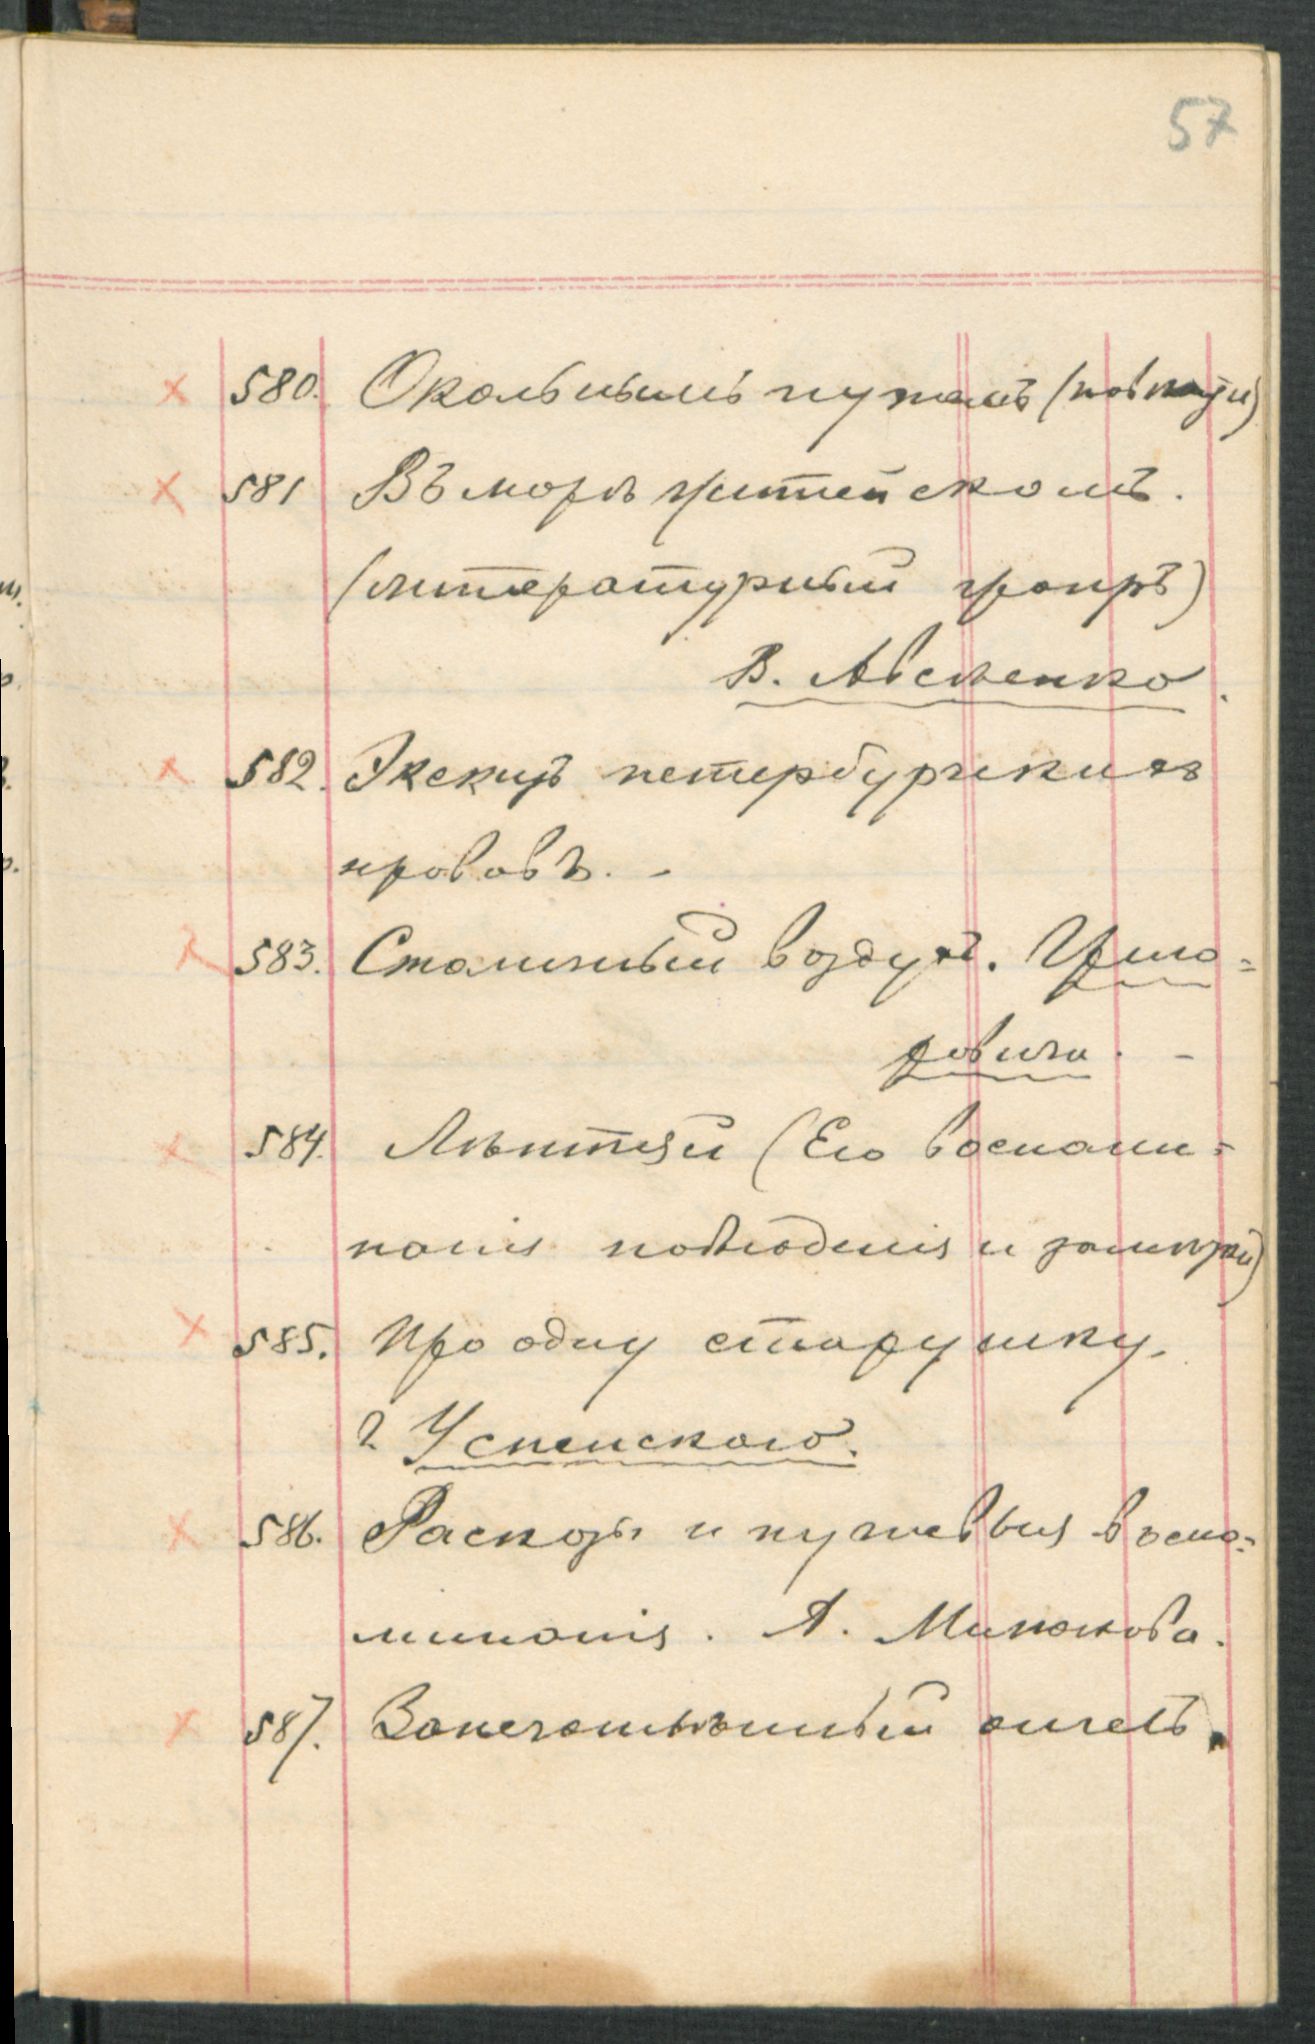 57
580. Окольнымъ путемъ (повѣсти)
581 Въ морѣ житейскомъ.
(литературный жанръ)
В. Авсѣенко.
582. Экскизъ петербургскихъ
нрововъ. -
583. Столичный воздухъ. Цимо=
ровича. -
584. Лѣнтяй (Его воспоми=
нанія наблюденія и замѣтки)
585. Про одну старушку.
г Успенскаго.
586. Расказы и путевыя воспо=
минанія. А. Милюкова.
587. Запечатлѣнный ангелъ.